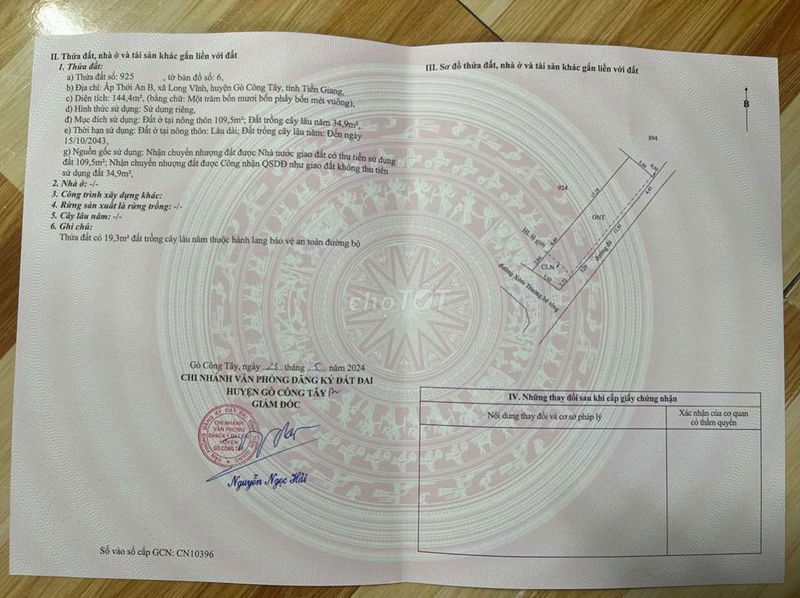 II. Thửa đất, nhà ở và tài sản khác gắn liền với đất
1. Thửa đất:
a) Thửa đất số: 925 , tờ bản đồ số: 6,
b) Địa chỉ: Ấp Thới An B, xã Long Vĩnh, huyện Gò Công Tây, tỉnh Tiền Giang,
c) Diện tích: 144,4m², (bằng chữ: Một trăm bốn mươi bốn phẩy bốn mét vuông),
d) Hình thức sử dụng: Sử dụng riêng,
đ) Mục đích sử dụng: Đất ở tại nông thôn 109,5m²; Đất trồng cây lâu năm 34,9m²,
e) Thời hạn sử dụng: Đất ở tại nông thôn: Lâu dài; Đất trồng cây lâu năm: Đến ngày
15/10/2043,
g) Nguồn gốc sử dụng: Nhận chuyển nhượng đất được Nhà nước giao đất có thu tiền sử dụng
đất 109,5m²; Nhận chuyển nhượng đất được Công nhận QSDĐ như giao đất không thu tiền
sử dụng đất 34,9m²,
2. Nhà ở: -/-
3. Công trình xây dựng khác:
4. Rừng sản xuất là rừng trồng: -/-
5. Cây lâu năm: -/-
6. Ghi chú:
Thửa đất có 19,3m² đất trồng cây lâu năm thuộc hành lang bảo vệ an toàn đường bộ
Gò Công Tây, ngày tháng 5 năm 2024
CHI NHÁNH VĂN PHÒNG ĐĂNG KÝ ĐẤT ĐAI
HUYỆN GÒ CÔNG TÂY
GIÁM ĐỐC
CHI NHÁNH
VĂN PHÒNG
ĐĂNG KÝ ĐẤT ĐAI
HUYỆN
GÒ CÔNG TÂY
Nguyễn Ngọc Hải
Số vào sổ cấp GCN: CN10396
III. Sơ đồ thửa đất, nhà ở và tài sản khác gắn liền với đất
B
894
924
ONT
HL lộ giới
CLN
đường đá
đường Xóm Thương bê tông
choTỐT
IV. Những thay đổi sau khi cấp giấy chứng nhận
Nội dung thay đổi và cơ sở pháp lý
Xác nhận của cơ quan
có thẩm quyền